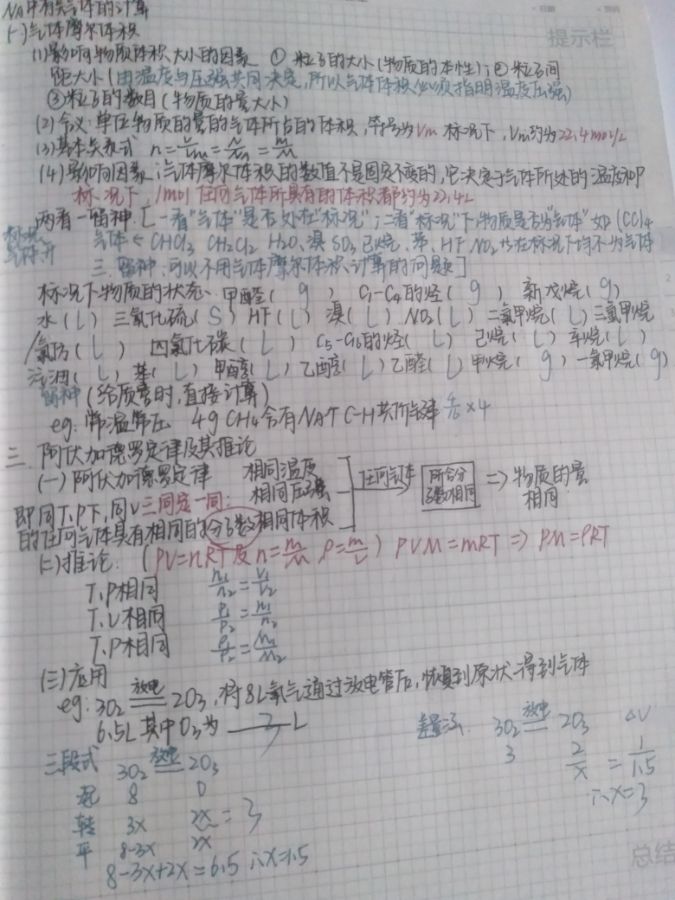 NA中有关气体的计算
(一)气体摩尔体积
提示栏
(1)影响物质体积大小的因素 ①粒子的大小(物质的本性);②粒子间
距大小(由温度与压强共同决定,所以气体体积必须指明温度压强)
③粒子的数目(物质的量大小)
(2)含义:单位物质的量的气体所占的体积,符号为Vm 标况下,Vm约为22.4mol/L
(3)基本关系式 n=V/Vm=N/NA=m/M
(4)影响因素:气体摩尔体积的数值不是固定不变的,它决定于气体所处的温度和P
标况下,1mol任何气体所具有的体积都约为22.4L
两看一留神.[一看"气体"是否处在"标况";二看"标况"下,物质是否为"气体"如(CCl4
气体 CHCl3 CH2Cl2 H2O、溴 SO3 己烷、苯、HF、NO2 在标况下均不为气体
三.留神:可以不用气体摩尔体积计算的问题]
标况下物质的状态、甲醛(g) C1-C4的烃(g) 新戊烷(g)
水(L) 三氧化硫(S) HF(L) 溴(L) NO2(L) 二氯甲烷(L) 三氯甲烷
/氯仿(L) 四氯化碳(L) C5-C16的烃(L) 己烷(L) 辛烷(L)
汽油(L) 苯(L) 甲醇(L) 乙醇(L) 乙醛(L) 甲烷(g) 一氯甲烷(g)
留神(给质量时,直接计算)
eg.常温常压 4g CH4含有NA个C-H共价键 4/16×4
二.阿伏加德罗定律及其推论
(一)阿伏加德罗定律 相同温度
相同压强 任何气体 所含分子数相同 ⇒物质的量相同
相同体积
即同T、P下,同V三同定一同:
的任何气体具有相同的分子数
(二)推论:(PV=nRT及n=m/M ρ=m/V) PVM=mRT⇒PM=ρRT
T、P相同 n1/n2=V1/V2
T、V相同 P1/P2=n1/n2
T、P相同 ρ1/ρ2=M1/M2
(三)应用
eg:3O2 放电 2O3,将8L氧气通过放电管后,恢复到原状,得到气体
6.5L 其中O3为 3 L
差量法 3O2 放电 2O3 ΔV
3 2/x = 1/1.5
∴x=3
三段式 3O2 放电 2O3
起 8 0
转 3x 2x=3
平 8-3x 2x
8-3x+2x=6.5 ∴x=1.5
总结